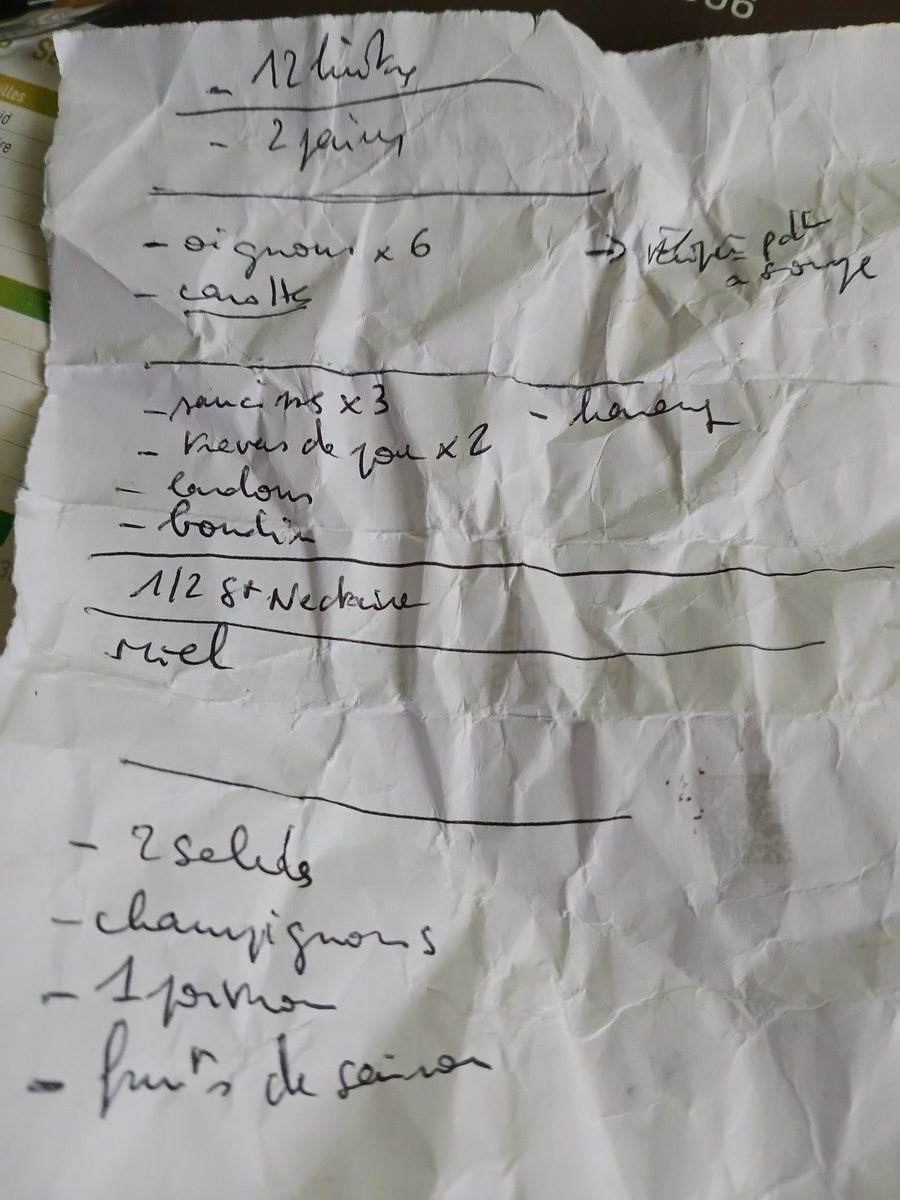 006
- 12 huîtres
- 2 pains
- oignons x 6
- carottes
-> récupérer pdt
- saucisses x 3
- travers de porc x 2
- lardons
- boudin
1/2 St Nectaire
miel
- 2 salades
- champignons
- 1 poivron
- fruits de saison